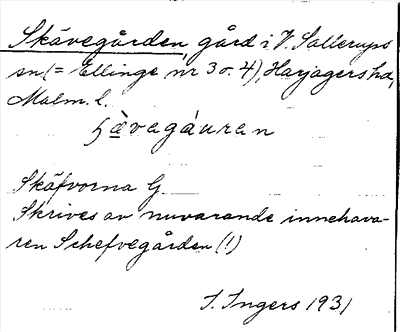 Skävegården, gård i V. Sallerups
sn (= Ellinge nr 3 o. 4), Harjagers hd,
Malm. l.
ɧὰvagáuran
Skäfvorna G.
Skrives av nuvarande innehava-
ren Schefvegården (!)
I. Ingers 1931